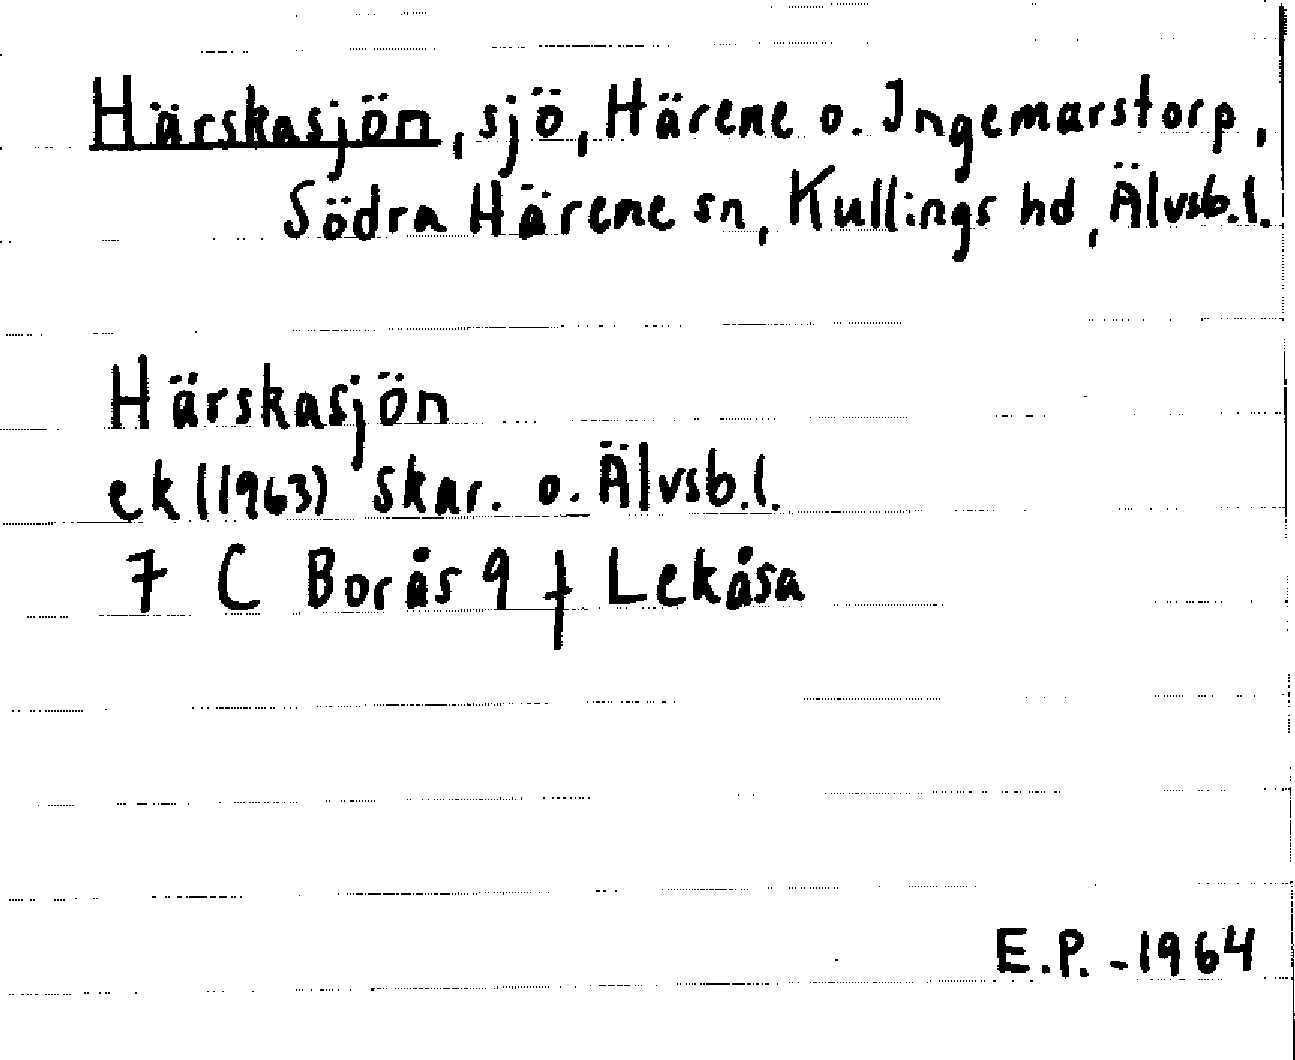 Härskasjön, sjö, Härene o. Ingemarstorp,
Södra Härene sn, Kullings hd, Älvsb.l.
Härskasjön
ek (1963) Skar. o. Älvsb.l.
7 C Borås 9 f Lekåsa
E.P. -1964